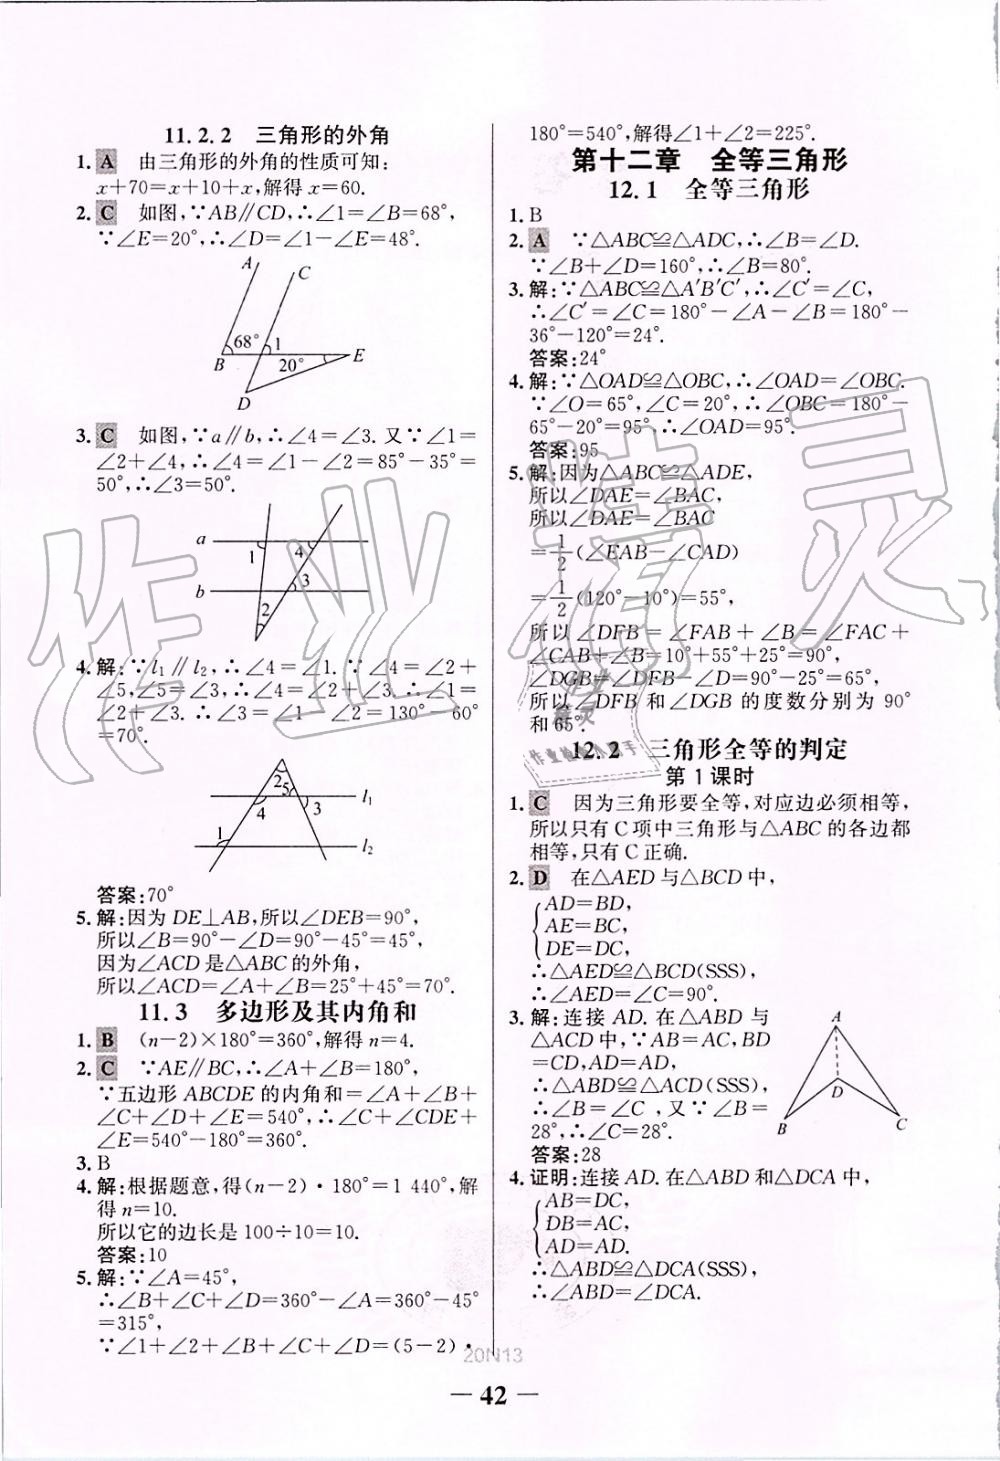 11.2.2 三角形的外角
1. A 由三角形的外角的性质可知:
x+70=x+10+x,解得 x=60.
2. C 如图,∵AB∥CD,∴∠1=∠B=68°,
∵∠E=20°,∴∠D=∠1-∠E=48°.
A
C
68°
1
B
20°
E
D
3. C 如图,∵a∥b,∴∠4=∠3.又∵∠1=
∠2+∠4,∴∠4=∠1-∠2=85°-35°=
50°,∴∠3=50°.
a
1
4
b
3
2
4. 解:∵l₁∥l₂,∴∠4=∠1.∵∠4=∠2+
∠5,∠5=∠3,∴∠4=∠2+∠3.∴∠1=
∠2+∠3.∴∠3=∠1-∠2=130°-60°
=70°.
2
5
l₁
4
3
1
l₂
答案:70°
5. 解:因为 DE⊥AB,所以∠DEB=90°,
所以∠B=90°-∠D=90°-45°=45°,
因为∠ACD是△ABC的外角,
所以∠ACD=∠A+∠B=25°+45°=70°.
11.3 多边形及其内角和
1. B (n-2)×180°=360°,解得 n=4.
2. C ∵AE∥BC,∴∠A+∠B=180°,
∵五边形 ABCDE 的内角和=∠A+∠B+
∠C+∠D+∠E=540°,∴∠C+∠CDE+
∠E=540°-180°=360°.
3. B
4. 解:根据题意,得(n-2)·180°=1 440°,解
得 n=10.
所以它的边长是 100÷10=10.
答案:10
5. 解:∵∠A=45°,
∴∠B+∠C+∠D=360°-∠A=360°-45°
=315°,
∵∠1+∠2+∠B+∠C+∠D=(5-2)·
180°=540°,解得∠1+∠2=225°.
第十二章 全等三角形
12.1 全等三角形
1. B
2. A ∵△ABC≌△ADC,∴∠B=∠D.
∵∠B+∠D=160°,∴∠B=80°.
3. 解:∵△ABC≌△A′B′C′,∴∠C′=∠C,
∴∠C′=∠C=180°-∠A-∠B=180°-
36°-120°=24°.
答案:24°
4. 解:∵△OAD≌△OBC,∴∠OAD=∠OBC.
∵∠O=65°,∠C=20°,∴∠OBC=180°-
65°-20°=95°,∴∠OAD=95°.
答案:95
5. 解:因为△ABC≌△ADE,
所以∠DAE=∠BAC,
所以∠DAE=∠BAC
=1/2(∠EAB-∠CAD)
=1/2(120°-10°)=55°,
所以∠DFB=∠FAB+∠B=∠FAC+
∠CAB+∠B=10°+55°+25°=90°,
∠DGB=∠DFB-∠D=90°-25°=65°,
所以∠DFB和∠DGB的度数分别为90°
和65°.
12.2 三角形全等的判定
第1课时
1. C 因为三角形要全等,对应边必须相等,
所以只有C项中三角形与△ABC的各边都
相等,只有C正确.
2. D 在△AED与△BCD中,
AD=BD,
AE=BC,
DE=DC,
∴△AED≌△BCD(SSS),
∴∠AED=∠C=90°.
3. 解:连接 AD.在△ABD与
△ACD中,∵AB=AC,BD
=CD,AD=AD,
∴△ABD≌△ACD(SSS),
∴∠B=∠C,又∵∠B=
28°,∴∠C=28°.
答案:28
A
D
B
C
4. 证明:连接 AD.在△ABD和△DCA中,
AB=DC,
DB=AC,
AD=AD.
∴△ABD≌△DCA(SSS),
∴∠ABD=∠DCA.
20N13
— 42 —
作业精灵